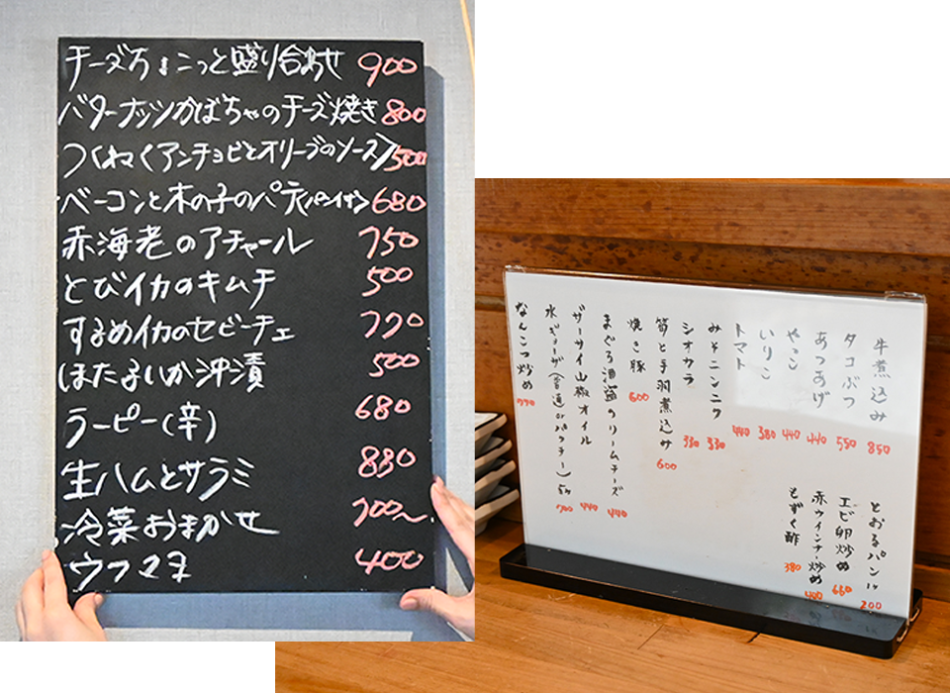 チーズちょこっと盛り合わせ 900
バターナッツかぼちゃのチーズ焼き 800
つくねくアンチョビとオリーブのソース〉500
ベーコンと木の子のパテ(パンイサン) 680
赤海老のアチャール 750
とびイカのキムチ 500
するめイカのセビーチェ 770
ほたるいか沖漬 500
ラーピー(辛) 680
生ハムとサラミ 880
冷菜おまかせ 700〜
ウフマヨ 400
牛煮込み 850
タコぶつ 550
あつあげ 440
やっこ 440
いりこ 380
トマト 440
みそニンニク 330
シオカラ 330
筍と手羽煮込み 600
焼き豚 600
まぐろ酒盗クリームチーズ 440
ザーサイ山椒オイル 440
水ギョーザ(普通orパクチー)5ヶ 700
なんこつ炒め 770
とおるパン1ヶ 200
エビ卵炒め 660
赤ウインナー炒め 400
もずく酢 380